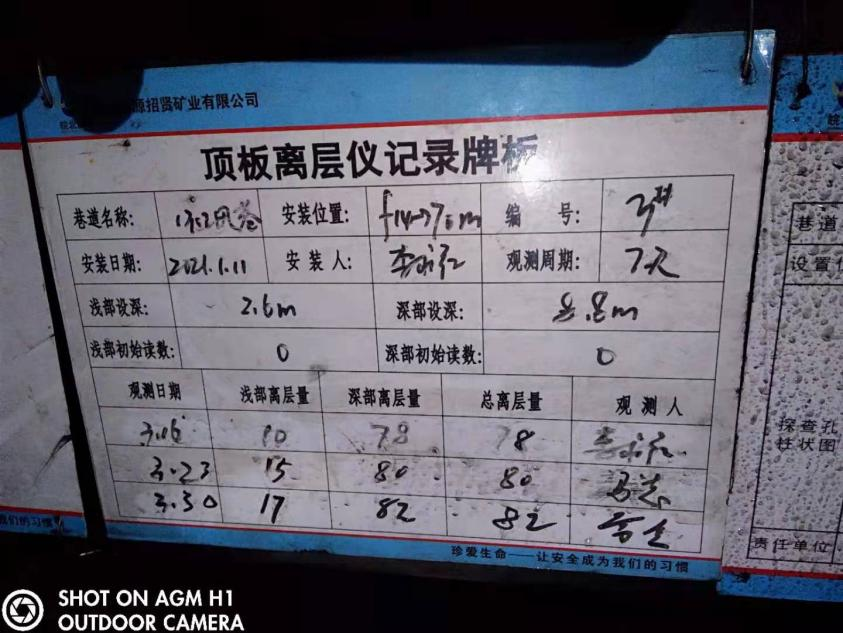 源招贤矿业有限公司
顶板离层仪记录牌板
巷道名称: 安装位置: f14→70m 编 号: 3#
安装日期: 2021.1.11 安装人: 李永红 观测周期: 7天
浅部设深: 2.6m 深部设深: 8.8m
浅部初始读数: 0 深部初始读数: 0
观测日期 浅部离层量 深部离层量 总离层量 观测人
3.16 10 78 78 李永红
3.23 15 80 80
3.30 17 82 82
珍爱生命——让安全成为我们的习惯
我们的习惯
巷道
设置
探查孔
柱状图
责任单位
SHOT ON AGM H1
OUTDOOR CAMERA